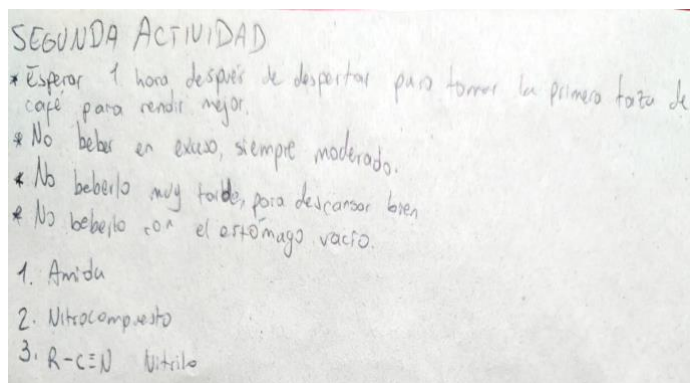 SEGUNDA ACTIVIDAD
* Esperar 1 hora después de despertar para tomar la primera taza de
café para rendir mejor.
* No beber en exceso, siempre moderado.
* No beberlo muy tarde, para descansar bien
* No beberlo con el estómago vacío.
1. Amida
2. Nitrocompuesto
3. R-C≡N Nitrilo